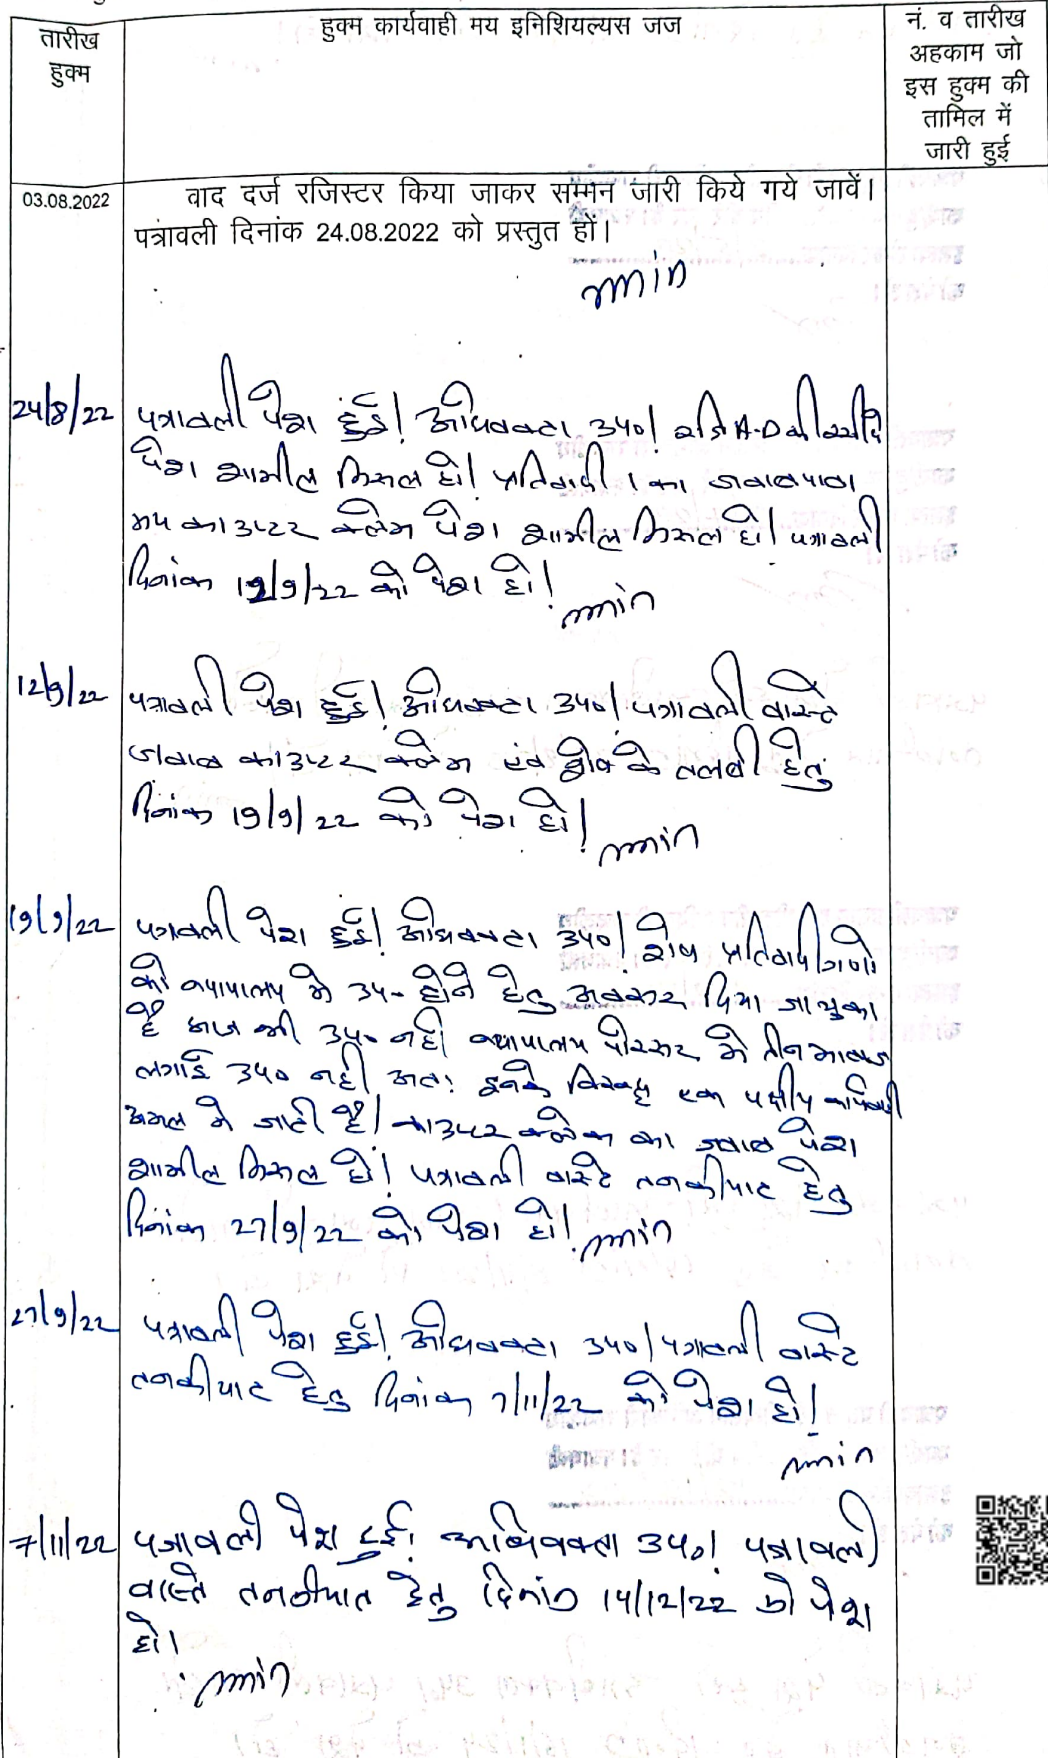 तारीख
हुक्म
हुक्म कार्यवाही मय इनिशियल्यस जज
नं. व तारीख
अहकाम जो
इस हुक्म की
तामिल में
जारी हुई
03.08.2022
वाद दर्ज रजिस्टर किया जाकर सम्मन जारी किये गये जावें।
पत्रावली दिनांक 24.08.2022 को प्रस्तुत हों।
24/8/22 पत्रावली पेश हुई। अधिवक्ता उप०। रजि A-D की रसीद
पेश शामील मिसल हो। प्रतिवादी 1 का जवाबदावा
मय काउन्टर क्लेम पेश शामील मिसल हो। पत्रावली
दिनांक 12/9/22 को पेश हो।
12/9/22 पत्रावली पेश हुई। अधिवक्ता उप०। पत्रावली वास्ते
जवाब काउन्टर क्लेम एवं शेष के तलबी हेतु
दिनांक 19/9/22 को पेश हो।
19/9/22 पत्रावली पेश हुई। अधिवक्ता उप०। शेष प्रतिवादीगणो
को न्यायालय मे उप० होने हेतु अवसर दिया जा चुका
है आज भी उप० नही न्यायालय परिसर मे तीन आवाज
लगाई उप० नही अतः इनके विरूद्ध एक पक्षीय कार्यवाही
अमल मे जाती है। काउन्टर क्लेम का जवाब पेश
शामील मिसल हो। पत्रावली वास्ते तनकीयात हेतु
दिनांक 27/9/22 को पेश हो।
27/9/22 पत्रावली पेश हुई। अधिवक्ता उप०। पत्रावली वास्ते
तनकीयात हेतु दिनांक 7/11/22 को पेश हो।
7/11/22 पत्रावली पेश हुई। अधिवक्ता उप०। पत्रावली
वास्ते तनकीयात हेतु दिनांक 14/12/22 को पेश
हो।